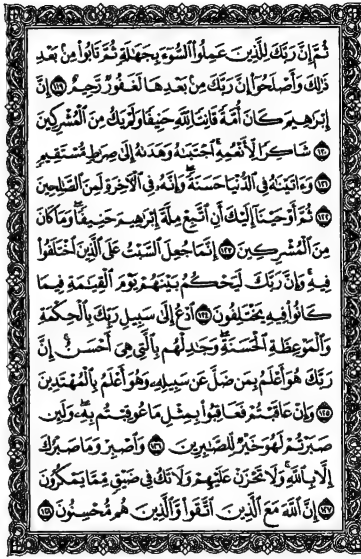 ثُمَّ إِنَّ رَبَّكَ لِلَّذِينَ عَمِلُوا۟ ٱلسُّوٓءَ بِجَهَٰلَةٍ ثُمَّ تَابُوا۟ مِنۢ بَعْدِ
ذَٰلِكَ وَأَصْلَحُوٓا۟ إِنَّ رَبَّكَ مِنۢ بَعْدِهَا لَغَفُورٌ رَّحِيمٌ ١١٩ إِنَّ
إِبْرَٰهِيمَ كَانَ أُمَّةً قَانِتًا لِّلَّهِ حَنِيفًا وَلَمْ يَكُ مِنَ ٱلْمُشْرِكِينَ
١٢٠ شَاكِرًا لِّأَنْعُمِهِ ٱجْتَبَىٰهُ وَهَدَىٰهُ إِلَىٰ صِرَٰطٍ مُّسْتَقِيمٍ
١٢١ وَءَاتَيْنَٰهُ فِى ٱلدُّنْيَا حَسَنَةً وَإِنَّهُۥ فِى ٱلْءَاخِرَةِ لَمِنَ ٱلصَّٰلِحِينَ
١٢٢ ثُمَّ أَوْحَيْنَآ إِلَيْكَ أَنِ ٱتَّبِعْ مِلَّةَ إِبْرَٰهِيمَ حَنِيفًا وَمَا كَانَ
مِنَ ٱلْمُشْرِكِينَ ١٢٣ إِنَّمَا جُعِلَ ٱلسَّبْتُ عَلَى ٱلَّذِينَ ٱخْتَلَفُوا۟
فِيهِ وَإِنَّ رَبَّكَ لَيَحْكُمُ بَيْنَهُمْ يَوْمَ ٱلْقِيَٰمَةِ فِيمَا
كَانُوا۟ فِيهِ يَخْتَلِفُونَ ١٢٤ ٱدْعُ إِلَىٰ سَبِيلِ رَبِّكَ بِٱلْحِكْمَةِ
وَٱلْمَوْعِظَةِ ٱلْحَسَنَةِ وَجَٰدِلْهُم بِٱلَّتِى هِىَ أَحْسَنُ إِنَّ
رَبَّكَ هُوَ أَعْلَمُ بِمَن ضَلَّ عَن سَبِيلِهِۦ وَهُوَ أَعْلَمُ بِٱلْمُهْتَدِينَ
١٢٥ وَإِنْ عَاقَبْتُمْ فَعَاقِبُوا۟ بِمِثْلِ مَا عُوقِبْتُم بِهِۦ وَلَئِن
صَبَرْتُمْ لَهُوَ خَيْرٌ لِّلصَّٰبِرِينَ ١٢٦ وَٱصْبِرْ وَمَا صَبْرُكَ
إِلَّا بِٱللَّهِ وَلَا تَحْزَنْ عَلَيْهِمْ وَلَا تَكُ فِى ضَيْقٍ مِّمَّا يَمْكُرُونَ
١٢٧ إِنَّ ٱللَّهَ مَعَ ٱلَّذِينَ ٱتَّقَوا۟ وَّٱلَّذِينَ هُم مُّحْسِنُونَ ١٢٨